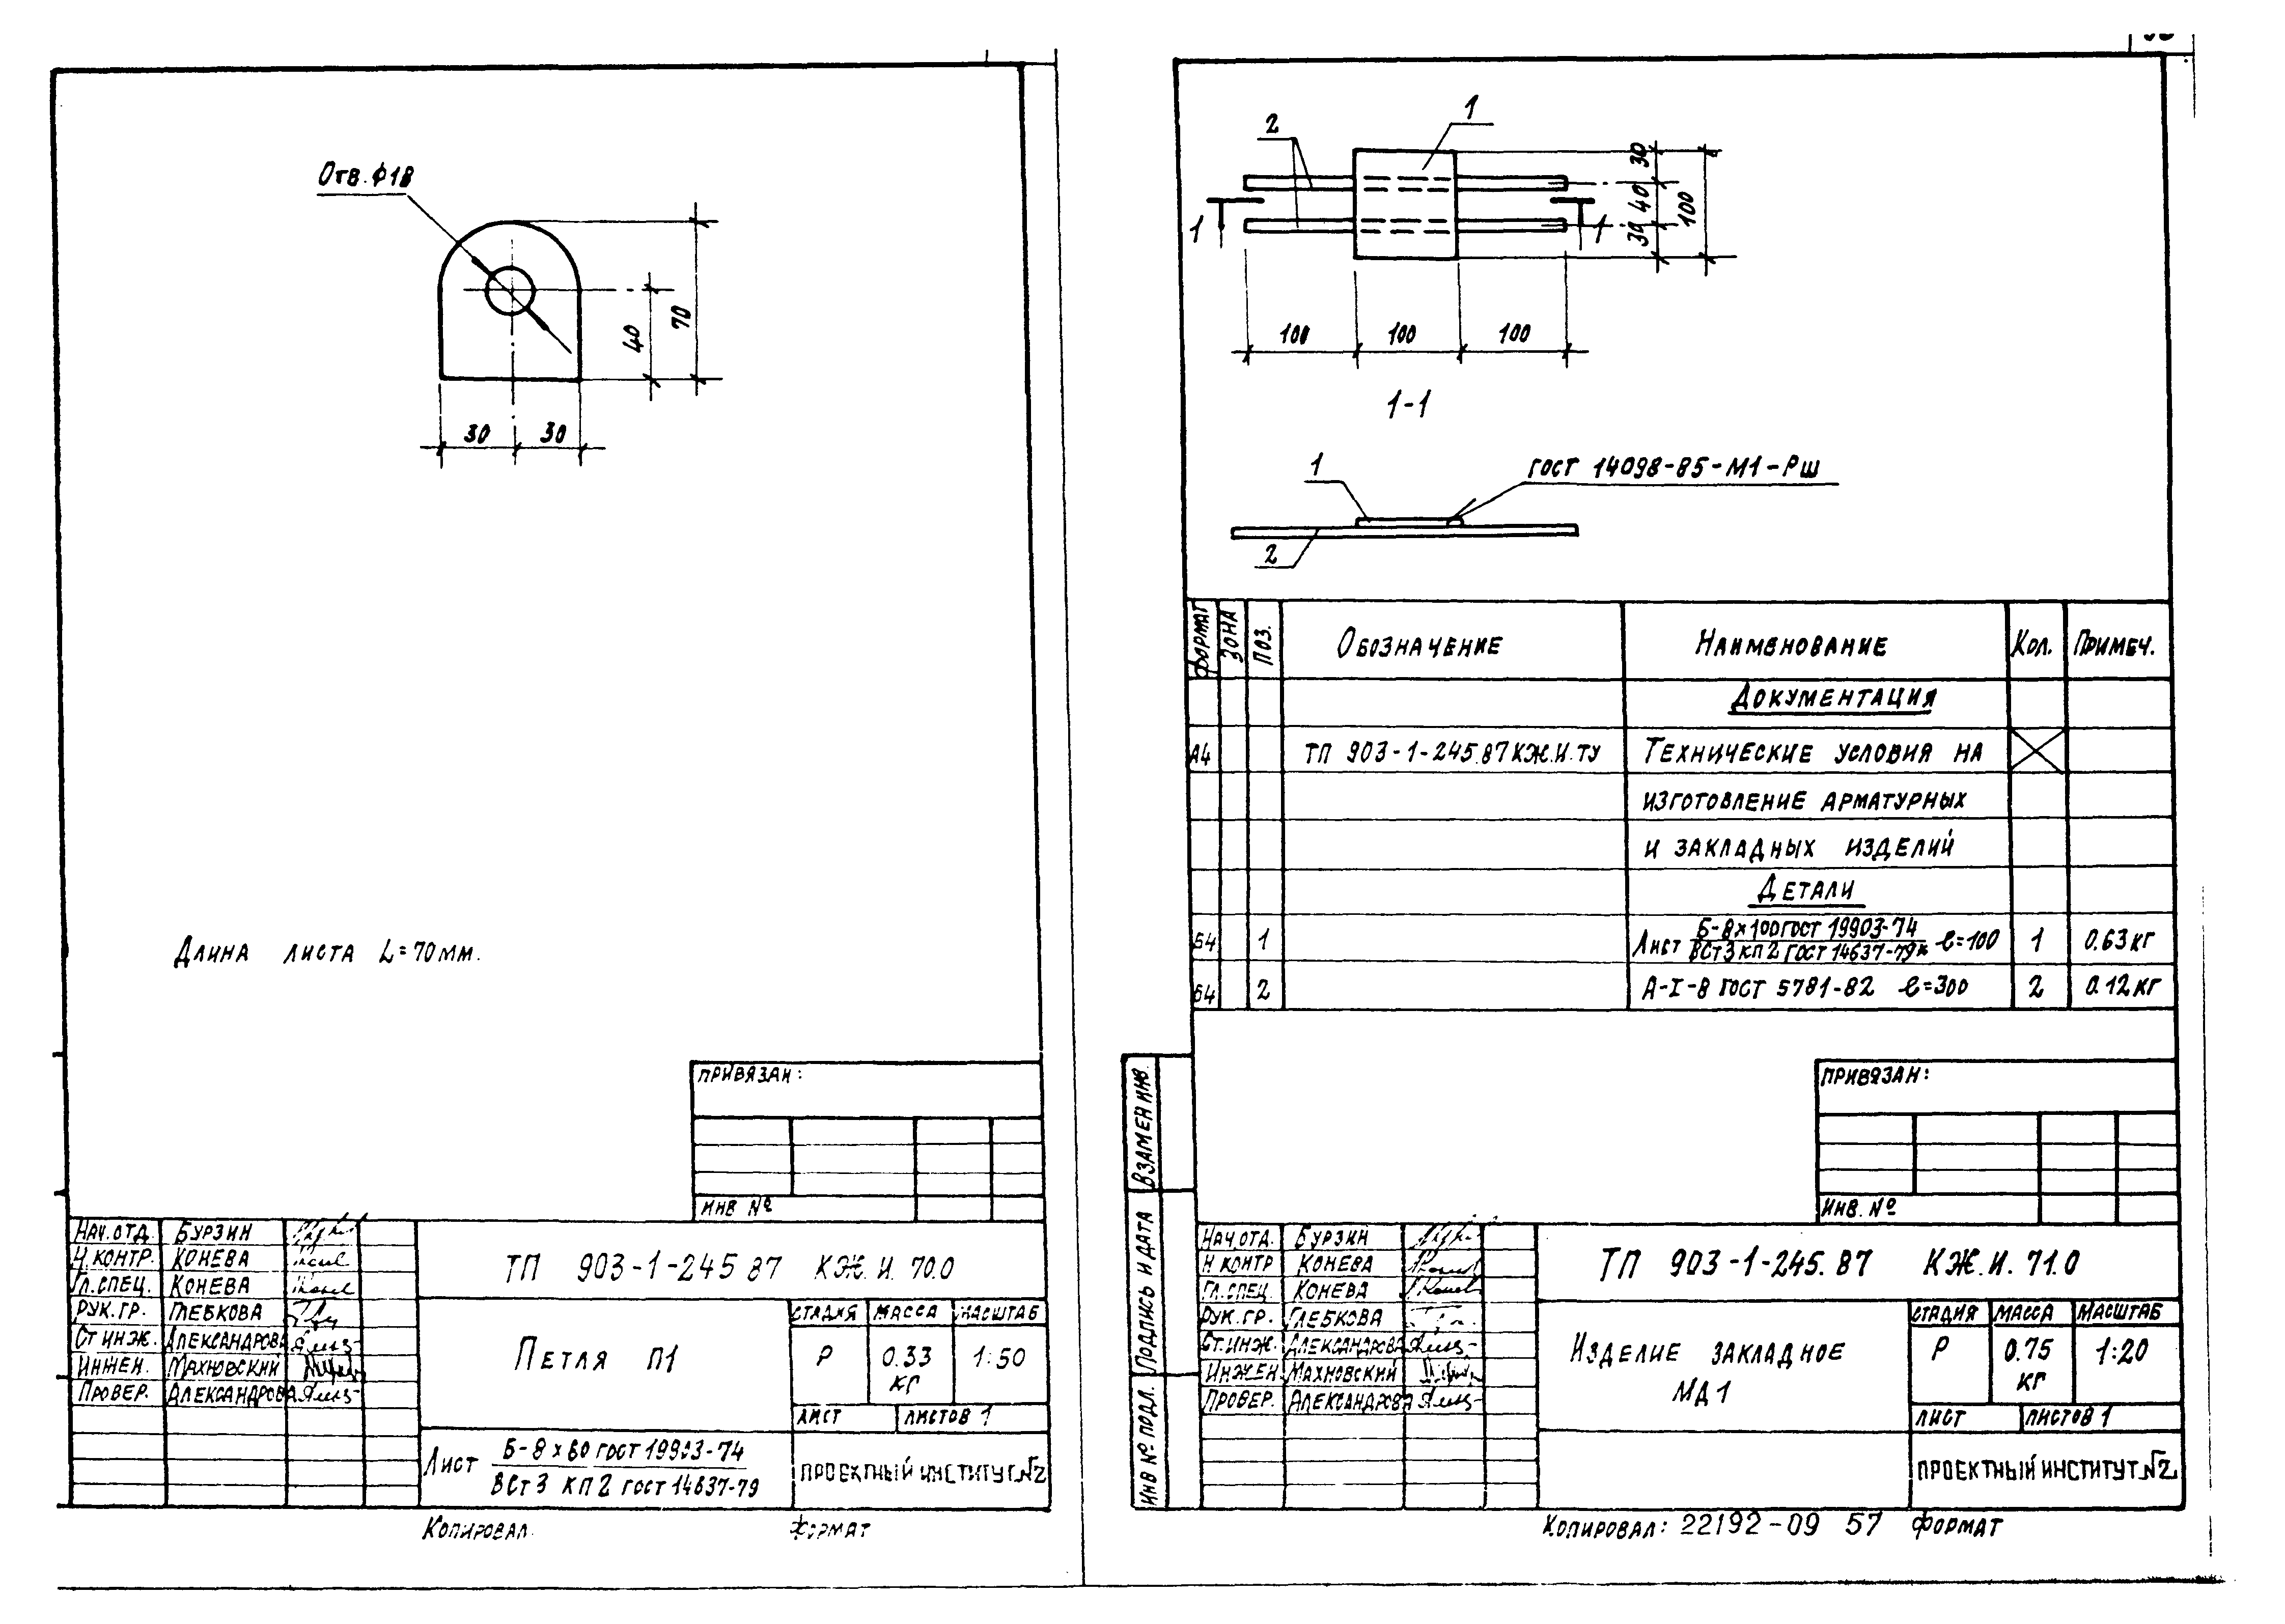 Отв. ϕ18
70
40
30 30
Длина листа L=70мм.
Привязан:
Инв №
Нач.отд. Бурзин
Н.контр. Конева
Гл.спец. Конева
Рук.гр. Глебкова
Ст инж. Александрова
Инжен. Махновский
Провер. Александрова
ТП 903-1-245 87 КЖ.И. 70.0
Петля П1
Стадия Масса Масштаб
Р 0.33 кг 1:50
Лист Листов 1
Лист Б-8х60 ГОСТ 19903-74
ВСт3 КП2 ГОСТ 14637-79
Проектный институт №2
Копировал Формат
2 1
30
40
30
100
1 1
100 100 100
1-1
1 ГОСТ 14098-85-М1-Рш
2
Формат Зона Поз. Обозначение Наименование Кол. Примеч.
Документация
А4 ТП 903-1-245.87 КЖ.И.ТУ Технические условия на
изготовление арматурных
и закладных изделий
Детали
Б4 1 Лист Б-8х100 ГОСТ 19903-74 ℓ=100 1 0.63 кг
ВСт3 КП2 ГОСТ 14637-79*
Б4 2 А-I-8 ГОСТ 5781-82 ℓ=300 2 0.12 кг
Взамен инв.
Подпись и дата
Инв № подл.
Привязан:
Инв. №
Нач.отд. Бурзин
Н контр Конева
Гл.спец. Конева
Рук.гр. Глебкова
Ст.инж. Александрова
Инжен Махновский
Провер. Александрова
ТП 903-1-245.87 КЖ.И. 71.0
Изделие закладное
МД1
Стадия Масса Масштаб
Р 0.75 кг 1:20
Лист Листов 1
Проектный институт №2
Копировал: 22192-09 57 Формат